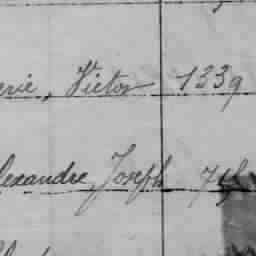 erie, Victor 1339
lexandre, Joseph